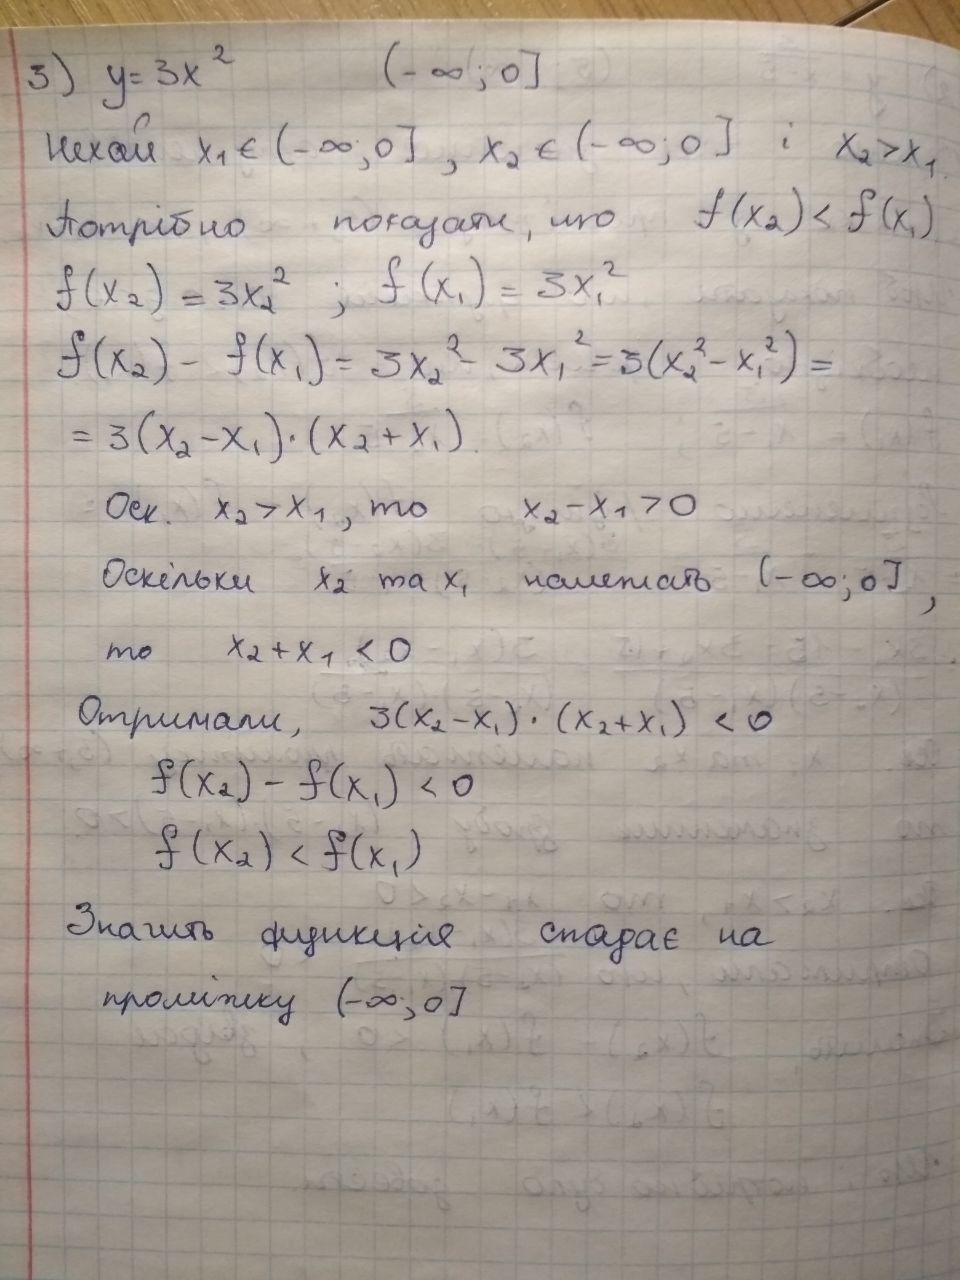 3) y = 3x² (-∞; 0]
Нехай x₁ ∈ (-∞; 0], x₂ ∈ (-∞; 0] і x₂ > x₁.
Потрібно показати, що f(x₂) < f(x₁)
f(x₂) = 3x₂² ; f(x₁) = 3x₁²
f(x₂) - f(x₁) = 3x₂² - 3x₁² = 3(x₂² - x₁²) =
= 3(x₂ - x₁) · (x₂ + x₁).
Оск. x₂ > x₁, то x₂ - x₁ > 0
Оскільки x₂ та x₁ належать (-∞; 0],
то x₂ + x₁ < 0
Отримали, 3(x₂ - x₁) · (x₂ + x₁) < 0
f(x₂) - f(x₁) < 0
f(x₂) < f(x₁)
Значить функція спадає на
проміжку (-∞; 0]